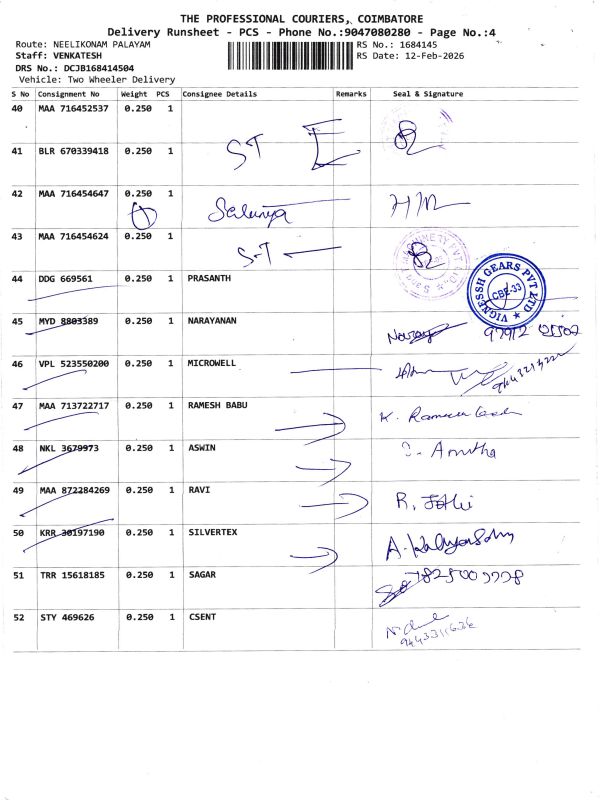 THE PROFESSIONAL COURIERS, COIMBATORE
Delivery Runsheet - PCS - Phone No.:9047080280 - Page No.:4
Route: NEELIKONAM PALAYAM
RS No.: 1684145
Staff: VENKATESH
RS Date: 12-Feb-2026
DRS No.: DCJB168414504
Vehicle: Two Wheeler Delivery
S No Consignment No Weight PCS Consignee Details Remarks Seal & Signature
40 MAA 716452537 0.250 1
41 BLR 670339418 0.250 1 ST E
42 MAA 716454647 0.250 1
43 MAA 716454624 0.250 1 S-T
44 DDG 669561 0.250 1 PRASANTH
VIGNESSH GEARS PVT LTD
CBE-33
45 MYD 8803389 0.250 1 NARAYANAN
46 VPL 523550200 0.250 1 MICROWELL
47 MAA 713722717 0.250 1 RAMESH BABU K. Ramesh
48 NKL 3679973 0.250 1 ASWIN Amutha
49 MAA 872284269 0.250 1 RAVI R. Jothi
50 KRR 30197190 0.250 1 SILVERTEX
51 TRR 15618185 0.250 1 SAGAR
52 STY 469626 0.250 1 CSENT